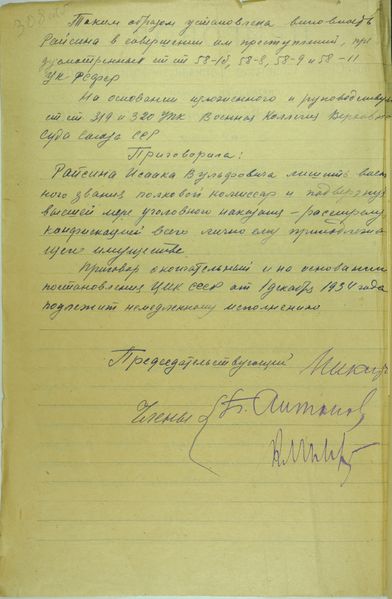 Таким образом установлена виновность
Райсина в совершении им преступлений, пре
дусмотренных ст ст 58-1б, 58-8, 58-9 и 58-11
УК РСФСР
На основании изложенного и руководствуясь
ст ст 319 и 320 УПК Военная Коллегия Верховного
Суда Союза ССР
Приговорила:
Райсина Исаака Вульфовича лишить воен
ного звания полковой комиссар и подвергнуть
высшей мере уголовного наказания - расстрелу
конфискацией всего лично ему принадлежа
щего имущества.
Приговор окончательный и на основании
постановления ЦИК СССР от 1 декабря 1934 года
подлежит немедленному исполнению
Председательствующий
Члены